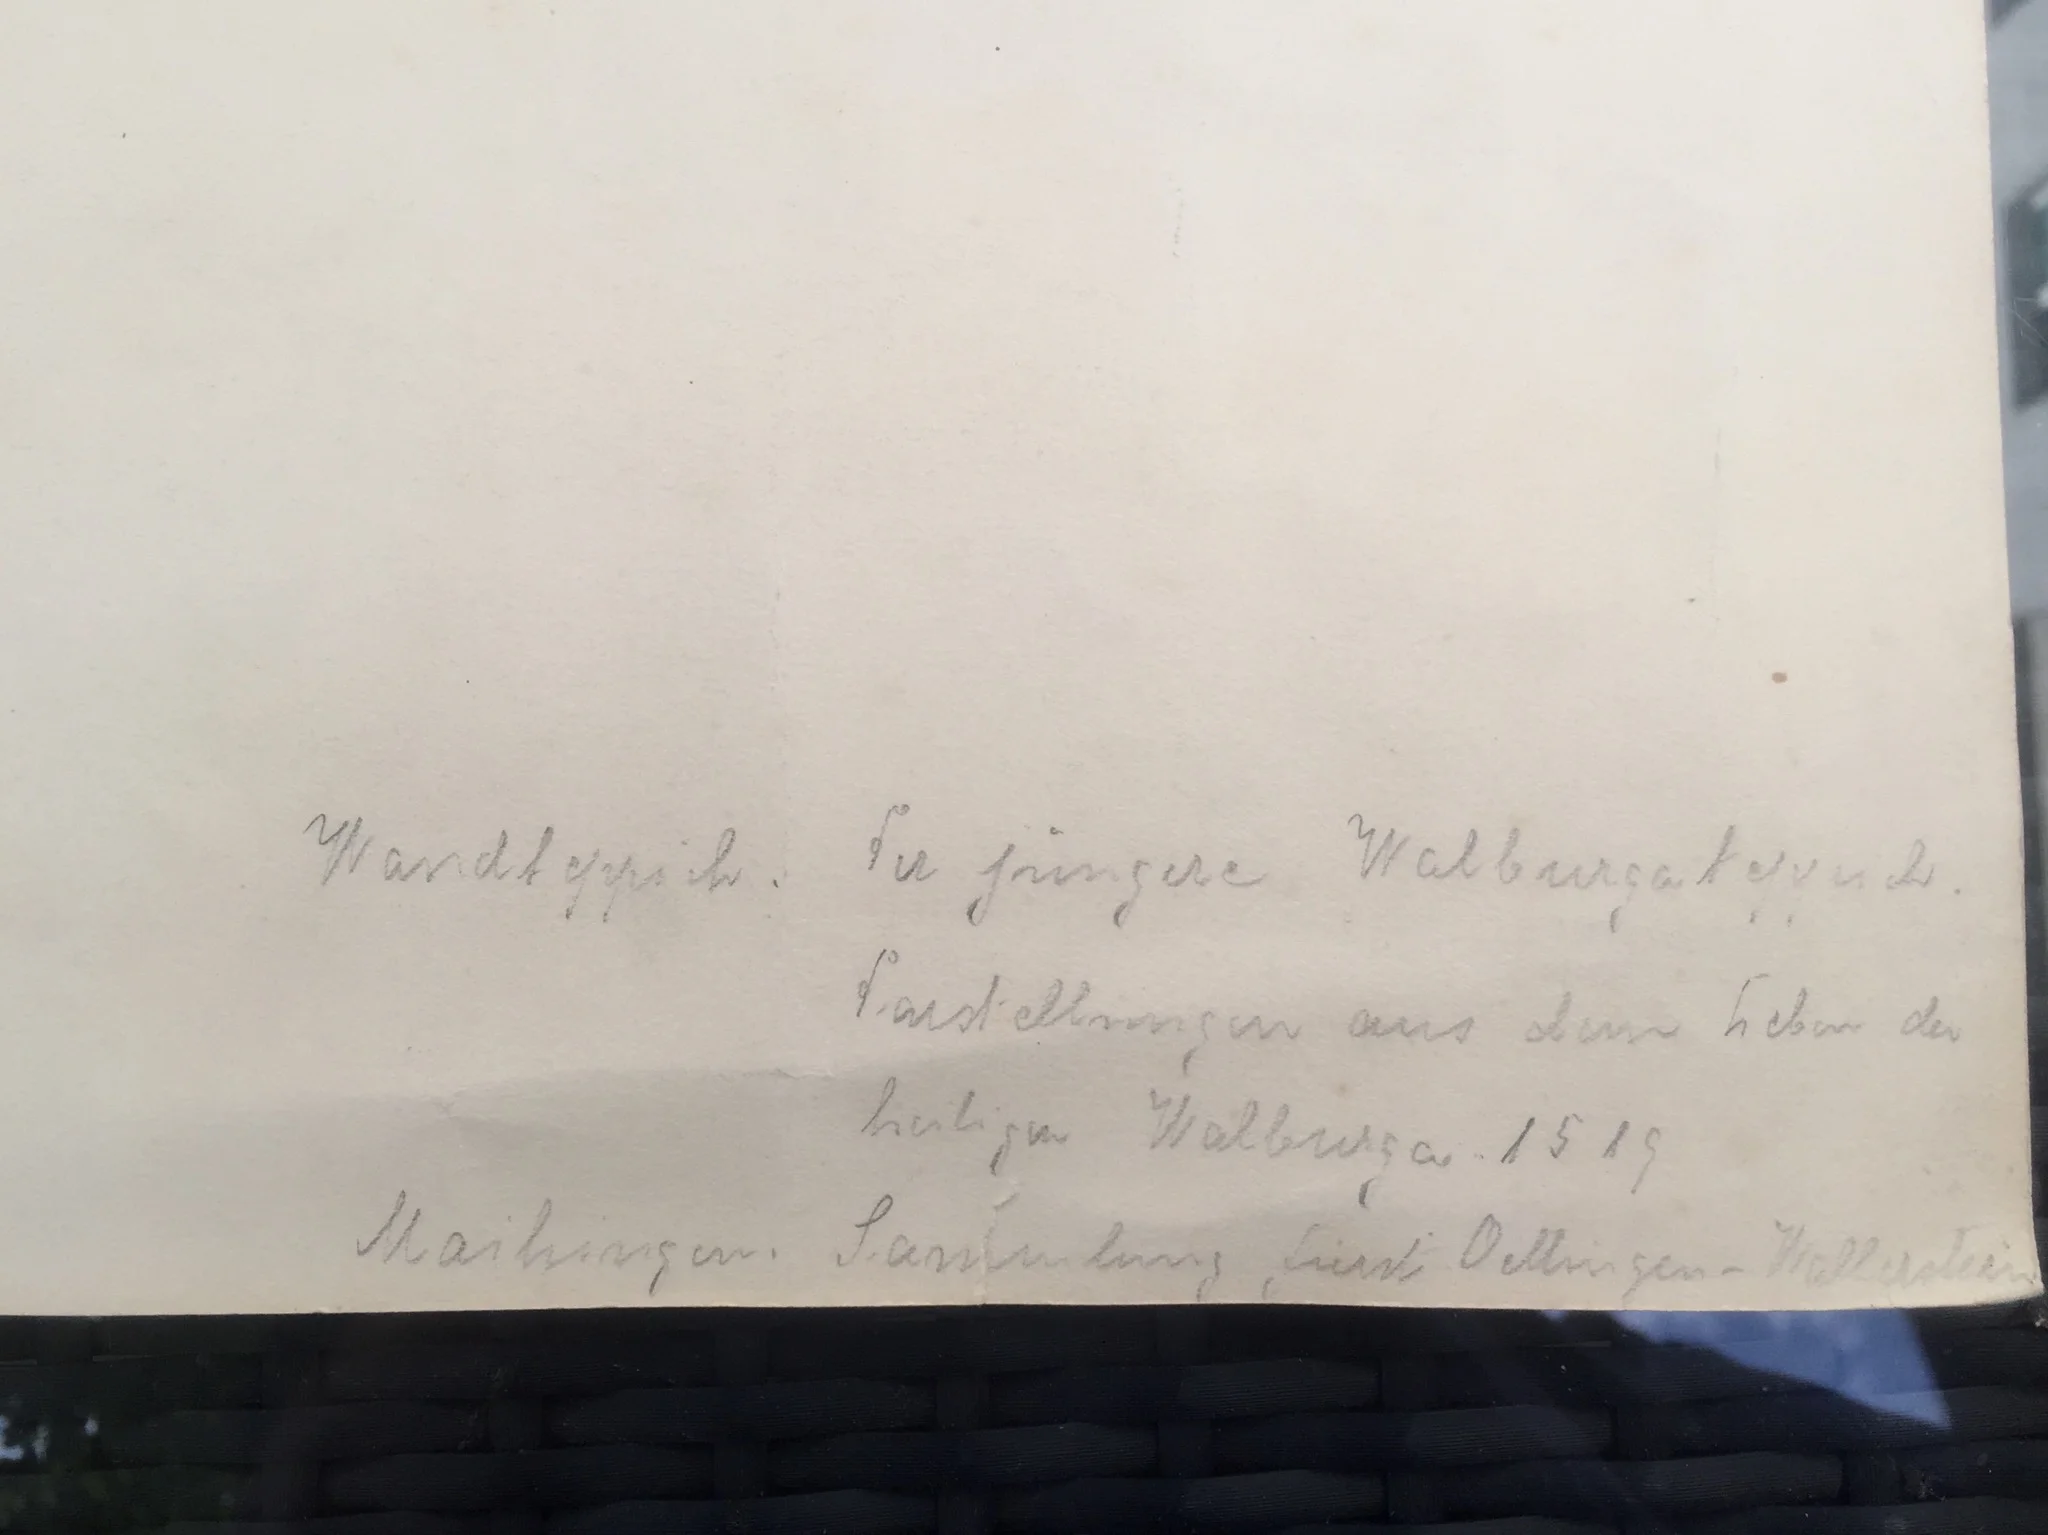 Wandteppich. Der jüngere Walburgateppich.
Darstellungen aus dem Leben der
heiligen Walburga. 1519
Maihingen. Sammlung Fürst Oettingen-Wallerstein